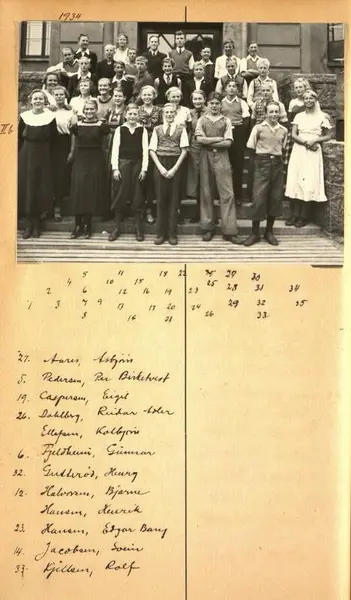 1934
II b
5 11 18 22 25 27 30
4 10 15 25 28 31 34
2 6 12 16 19 23
1 3 7 9 13 17 20 24 29 32 35
8 16 21 26 33
27. Aares, Asbjörn
5. Pedersen, Per Birketvest
19. Caspersen, Eigil
26. Dahlberg, Reidar Adler
Ellefsen, Kolbjörn
6. Fjeldheim, Gunnar
32. Henry
12. Halvorsen, Bjarne
Hansen, Henrik
23. Hansen, Edgar Bang
14. Jacobsen, Svein
33. Kjellsen, Rolf